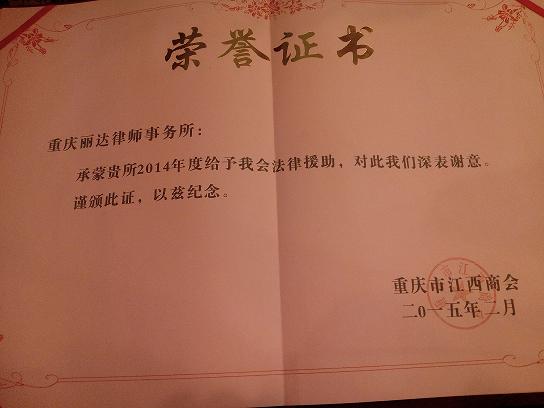 荣誉证书
重庆丽达律师事务所：
承蒙贵所2014年度给予我会法律援助，对此我们深表谢意。
谨颁此证，以兹纪念。
重庆市江西商会
二0一五年二月